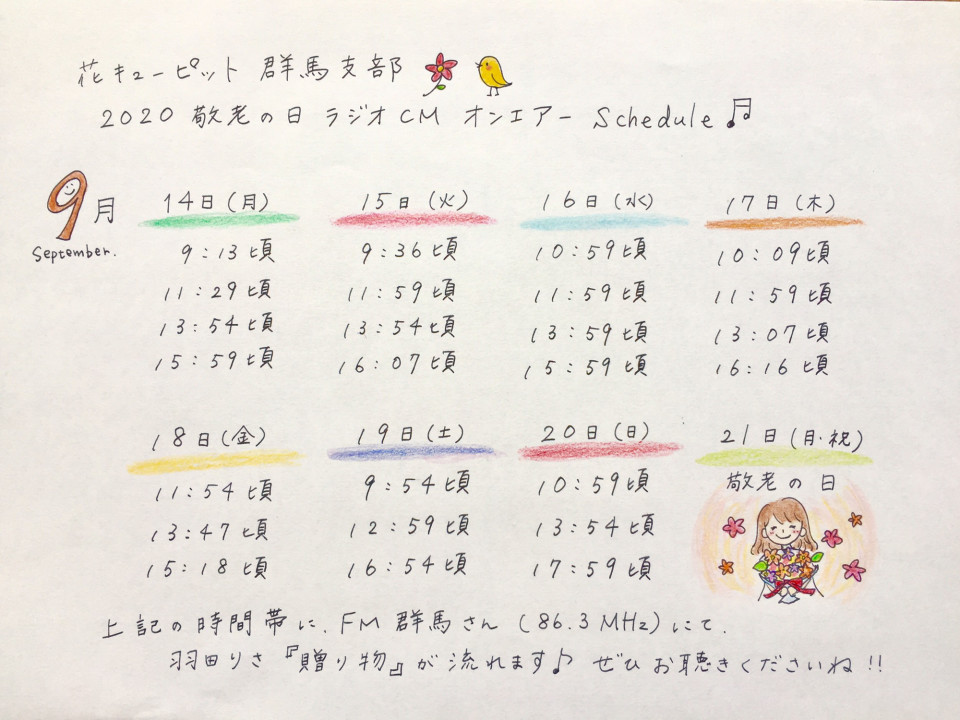 花キューピット 群馬支部
2020 敬老の日 ラジオCM オンエアー Schedule
9月
September.
14日(月) 15日(火) 16日(水) 17日(木)
9:13頃 9:36頃 10:59頃 10:09頃
11:29頃 11:59頃 11:59頃 11:59頃
13:54頃 13:54頃 13:59頃 13:07頃
15:59頃 16:07頃 15:59頃 16:16頃
18日(金) 19日(土) 20日(日) 21日(月・祝)
11:54頃 9:54頃 10:59頃 敬老の日
13:47頃 12:59頃 13:54頃
15:18頃 16:54頃 17:59頃
上記の時間帯に、FM群馬さん(86.3MHz)にて、
羽田りさ『贈り物』が流れます♪ ぜひお聴きくださいね!!